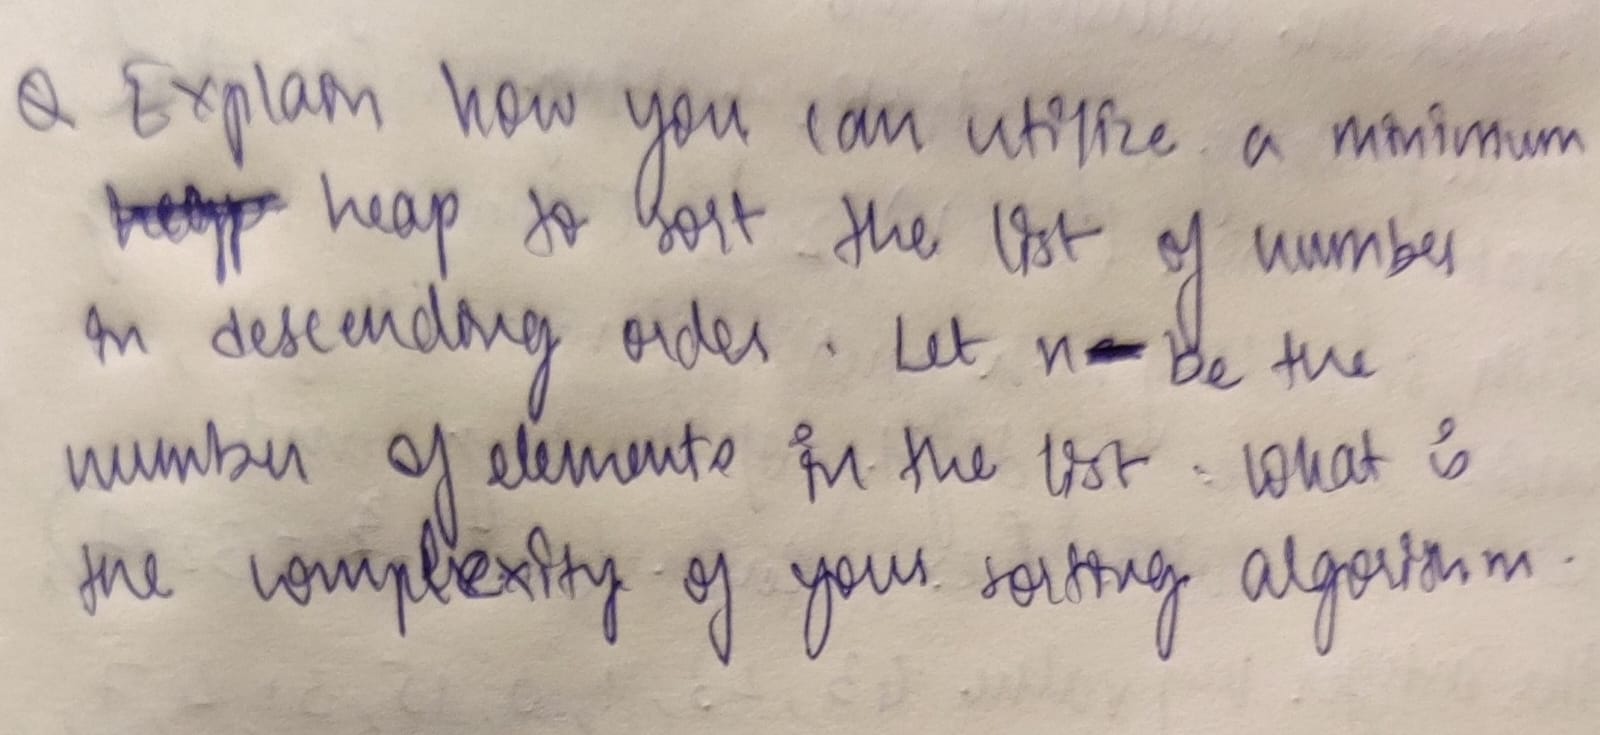 Q Explain how you can utilize a minimum
heap to sort the list of number
in descending order. Let n be the
number of elements in the list. What is
the complexity of your sorting algorithm.